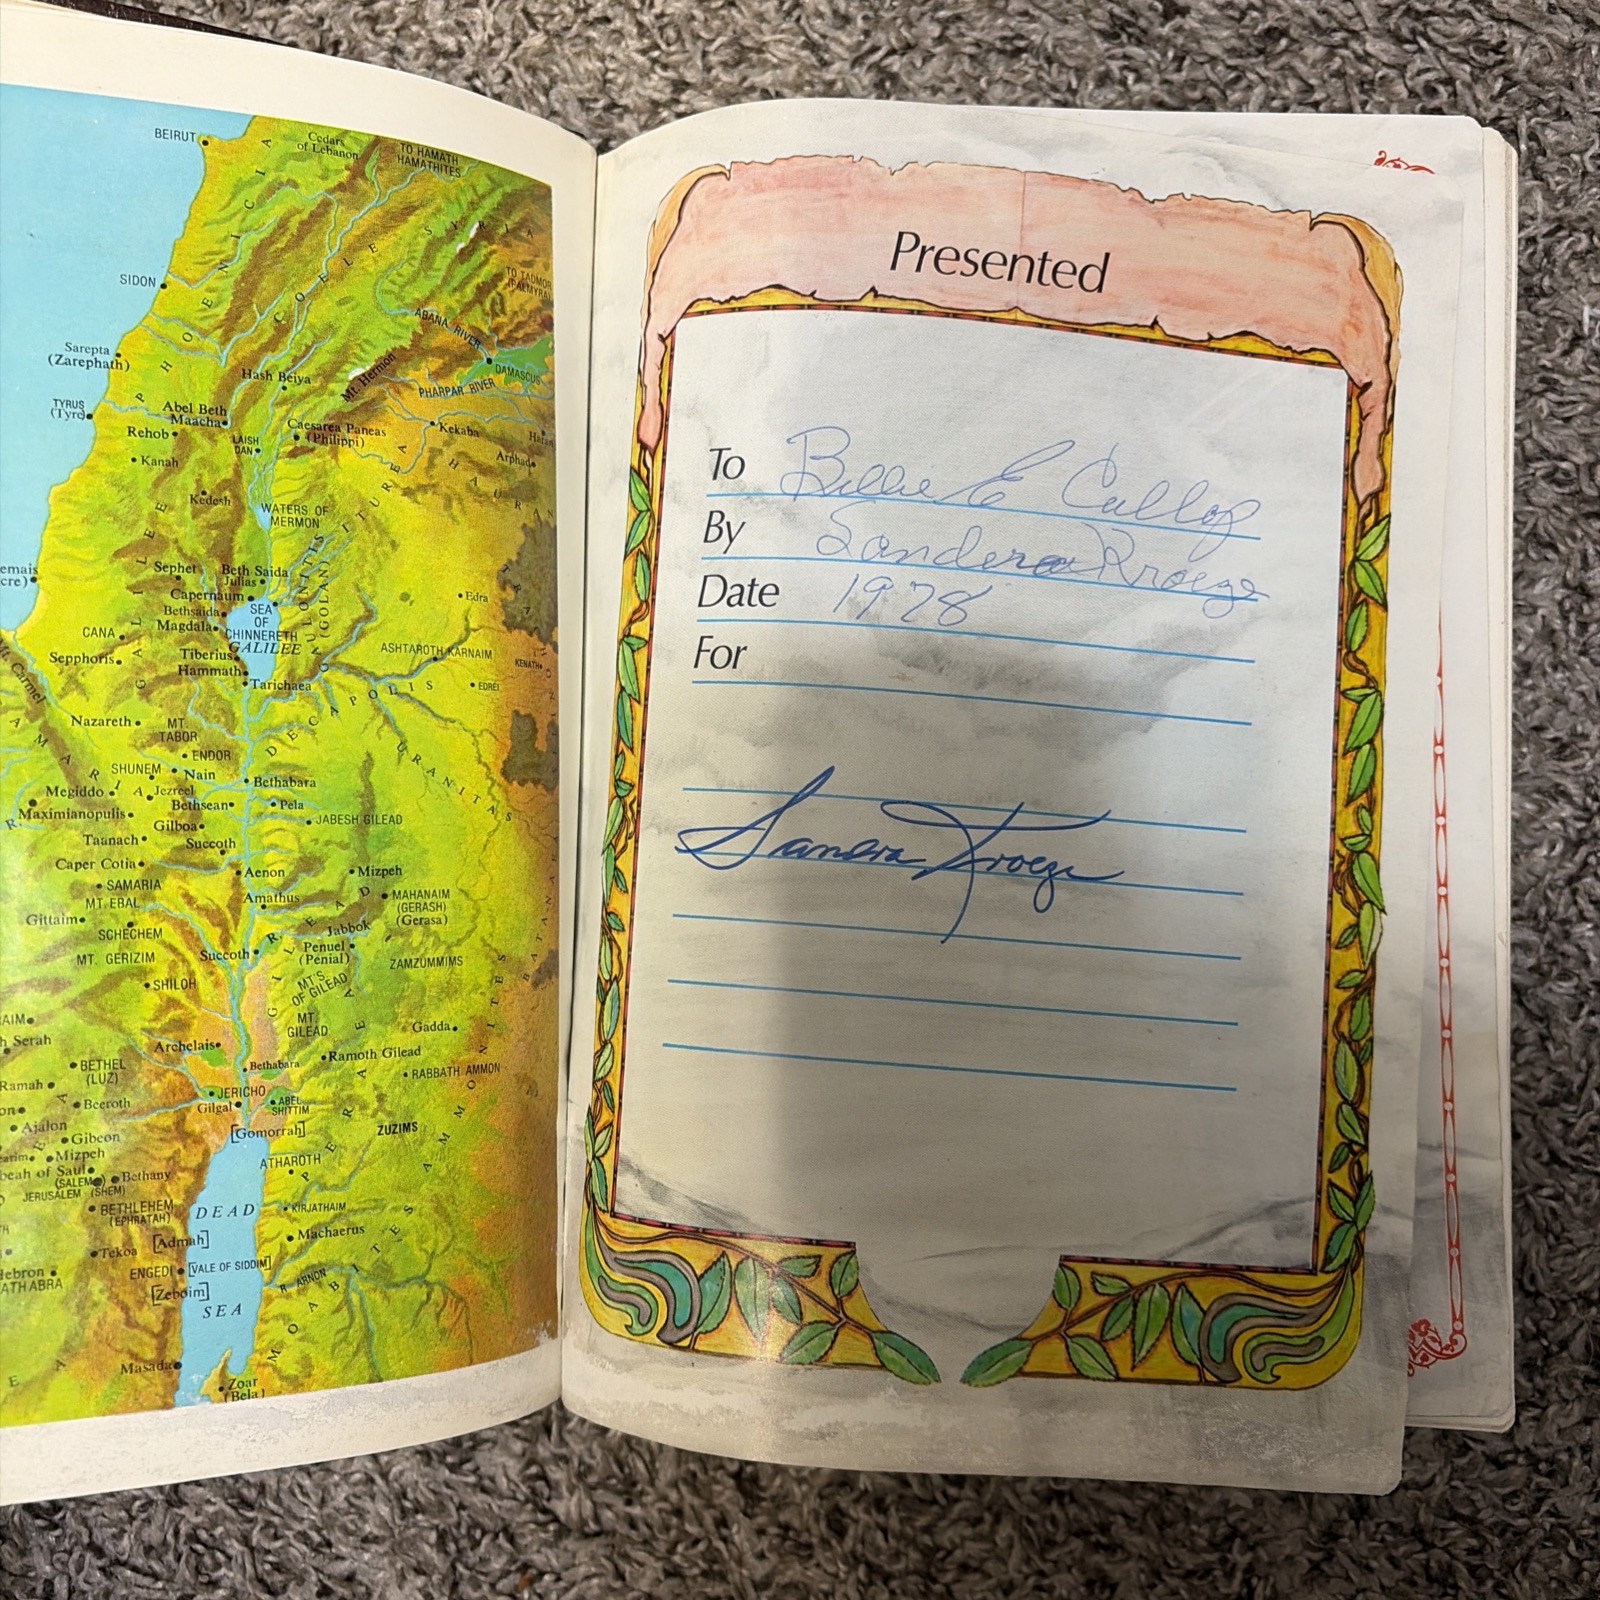 BEIRUT
Cedars
of Lebanon
TO HAMATH
HAMATHITES
PHOENICIA
COELE SYRIA
SIDON
TO TADMOR
(PALMYRA)
ABANA RIVER
Sarepta
(Zarephath)
Hash Beiya
Mt. Hermon
DAMASCUS
PHARPAR RIVER
TYRUS
(Tyre)
Abel Beth
Maacha
Rehob
LAISH
DAN
Caesarea Paneas
(Philippi)
Kekaba
Kanah
Arphad
HAURAN
Kedesh
WATERS OF
MERMON
ITUREA
Sephet
Beth Saida
Julias
Capernaum
Bethsaida
Magdala
SEA
OF
CHINNERETH
GALILEE
(GOLAN)
Edra
CANA
Sepphoris
Tiberius
Hammath
Tarichaea
ASHTAROTH KARNAIM
KENATH
EDREI
GALILEE
DECAPOLIS
Mt. Carmel
Nazareth
MT.
TABOR
ENDOR
SHUNEM
Nain
Bethabara
URANITAS
Megiddo
Jezreel
Bethsean
Pela
Maximianopulis
Gilboa
JABESH GILEAD
Taanach
Succoth
Caper Cotia
Aenon
Mizpeh
SAMARIA
MT. EBAL
Amathus
MAHANAIM
(GERASH)
(Gerasa)
Gittaim
SCHECHEM
Jabbok
MT. GERIZIM
Succoth
Penuel
(Penial)
ZAMZUMMIMS
SHILOH
MT'S.
OF GILEAD
GILEAD
MT
GILEAD
Gadda
Archelais
Ramoth Gilead
BETHEL
(LUZ)
Bethabara
RABBATH AMMON
Ramah
JERICHO
Gilgal
ABEL
SHITTIM
Beeroth
Ajalon
Gibeon
[Gomorrah]
ZUZIMS
Mizpeh
ATHAROTH
PEREA
AMMONITES
(SALEM)
Bethany
JERUSALEM
(SHEM)
BETHLEHEM
(EPHRATAH)
DEAD
KIRJATHAIM
[Admah]
Machaerus
Tekoa
ENGEDI
[VALE OF SIDDIM]
R. ARNON
[Zeboim]
SEA
MOABITES
Masada
Zoar
(Bela)
Presented
To Billie E Cullop
By Sandera Kroeze
Date 1978
For
Sandra Kroeze